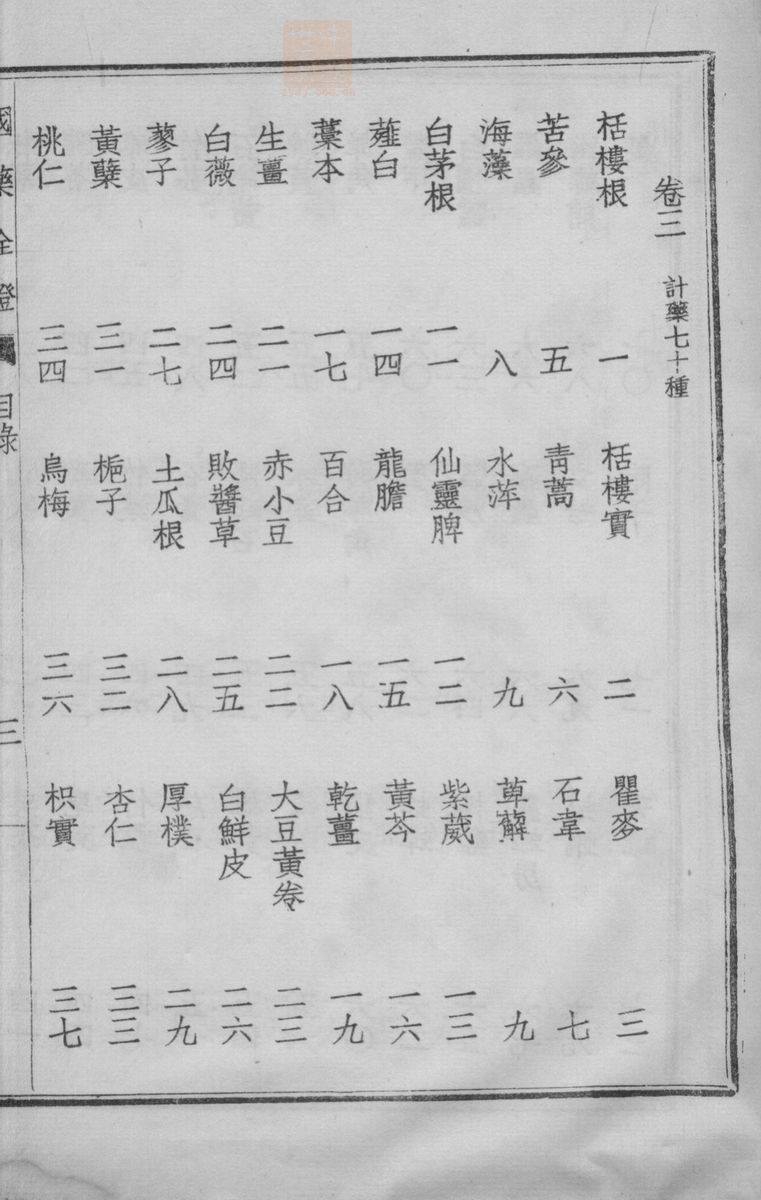 卷三 計藥七十種
栝樓根 一 栝樓實 二 瞿麥 三
苦參 五 青蒿 六 石韋 七
海藻 八 水萍 九 萆薢 九
白茅根 一一 仙靈脾 一二 紫葳 一三
薤白 一四 龍膽 一五 黃芩 一六
藁本 一七 百合 一八 乾薑 一九
生薑 二一 赤小豆 二二 大豆黃卷 二三
白薇 二四 敗醬草 二五 白鮮皮 二六
蓼子 二七 土瓜根 二八 厚樸 二九
黃蘗 三一 梔子 三二 杏仁 三三
桃仁 三四 烏梅 三六 枳實 三七
國藥詮證 目錄 三